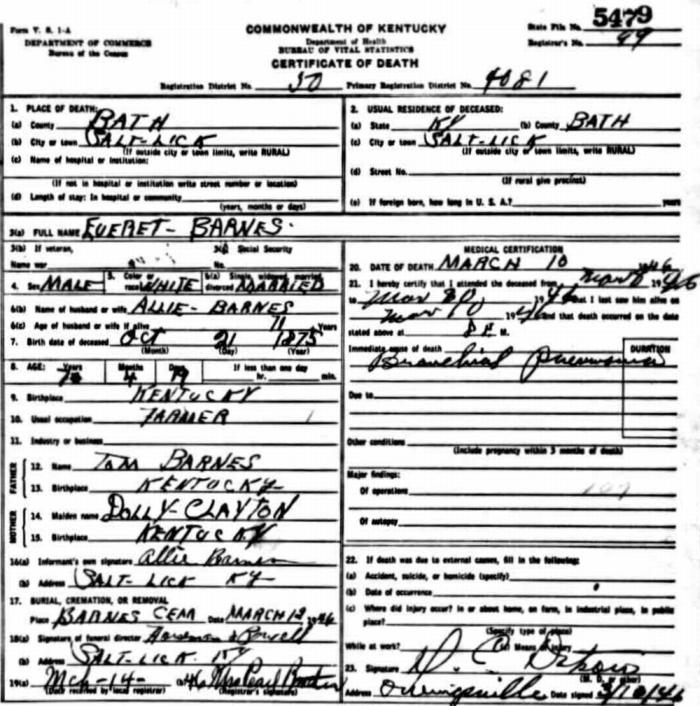 Form V. S. 1-A
DEPARTMENT OF COMMERCE
Bureau of the Census
COMMONWEALTH OF KENTUCKY
Department of Health
BUREAU OF VITAL STATISTICS
CERTIFICATE OF DEATH
State File No. 5479
Registrar's No. 49
Registration District No. 50 Primary Registration District No. 4081
1. PLACE OF DEATH:
(a) County BATH
(b) City or town SALT-LICK
(If outside city or town limits, write RURAL)
(c) Name of hospital or institution:
(If not in hospital or institution write street number or location)
(d) Length of stay: In hospital or community
(years, months or days)
2. USUAL RESIDENCE OF DECEASED:
(a) State KY (b) County BATH
(c) City or town SALT-LICK
(If outside city or town limits, write RURAL)
(d) Street No.
(If rural give precinct)
(e) If foreign born, how long in U. S. A.? years
3(a) FULL NAME EVERET- BARNES.
3(b) If veteran,
Name war
Social Security
No.
4. Sex MALE 5. Color or race WHITE 6(a) Single, widowed, married, divorced MARRIED
6(b) Name of husband or wife ALLIE- BARNES
6(c) Age of husband or wife if alive 71 Years
7. Birth date of deceased OCT 21 1875
(Month) (Day) (Year)
8. AGE: Years Months Days If less than one day
70 4 19 hr. min.
9. Birthplace KENTUCKY
10. Usual occupation FARMER
11. Industry or business
FATHER
12. Name TOM BARNES
13. Birthplace KENTUCKY-
MOTHER
14. Maiden name DOLLY-CLAYTON
15. Birthplace KENTUCKY
16(a) Informant's own signature Allie Barnes
(b) Address SALT-LICK KY-
17. BURIAL, CREMATION, OR REMOVAL
Place BARNES CEM Date MARCH 12 1946
18(a) Signature of funeral director
(b) Address SALT-LICK. KY
19(a) Mch-14- (b) Mrs Pearl
(Date received by local registrar) (Registrar's signature)
MEDICAL CERTIFICATION
20. DATE OF DEATH MARCH 10 1946
21. I hereby certify that I attended the deceased from Mar 8 1946
to Mar 10 1946 that I last saw him alive on
Mar 10 1946 and that death occurred on the date
stated above at 8 P. M.
Immediate cause of death DURATION
Bronchial pneumonia
Due to
Other conditions
(Include pregnancy within 3 months of death)
Major findings:
Of operations
Of autopsy
22. If death was due to external causes, fill in the following:
(a) Accident, suicide, or homicide (specify)
(b) Date of occurrence
(c) Where did injury occur? In or about home, on farm, in industrial place, in public
place?
(Specify type of place)
While at work? (e) Means of injury
23. Signature
(M. D. or other)
Address Owingsville Date signed 3/10/46